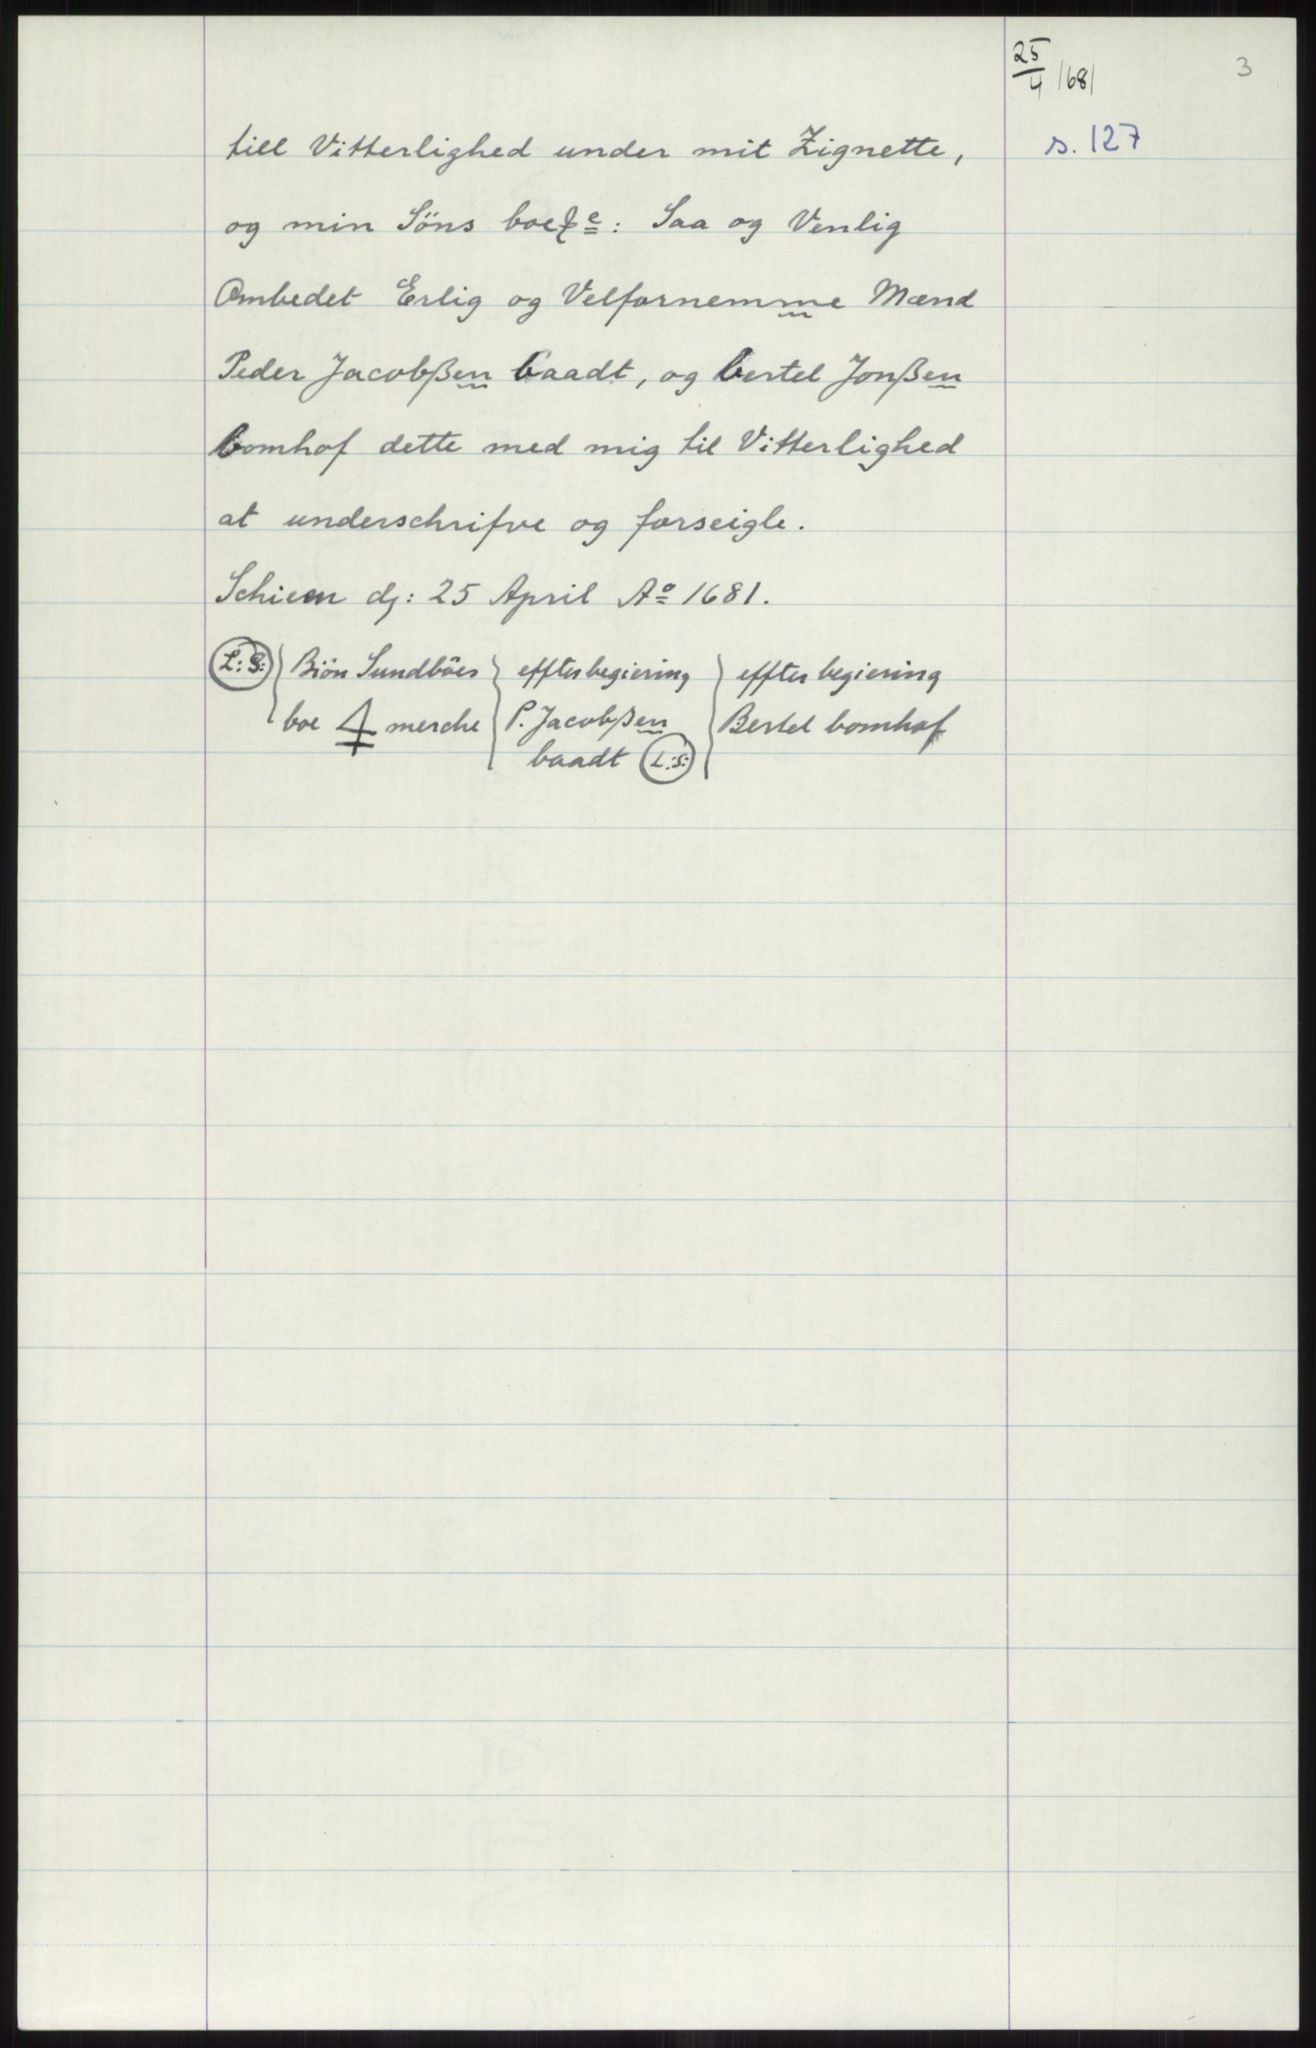 25/4 1681
3
s. 127
till Vitterlighed under mit Zignette,
og min Söns : Saa og Venlig
Ombedet Erlig og Velfornemme Mænd
Peder Jacobßen baadt, og bertel Jonßen
bomhof dette med mig til Vitterlighed
at underschrifve og forseigle.
Schien dj: 25 April Ao 1681.
L: S: Biön Sundböes
boe merche
effter begiering
P. Jacobßen
baadt L: S:
effter begiering
Bertel bomhof